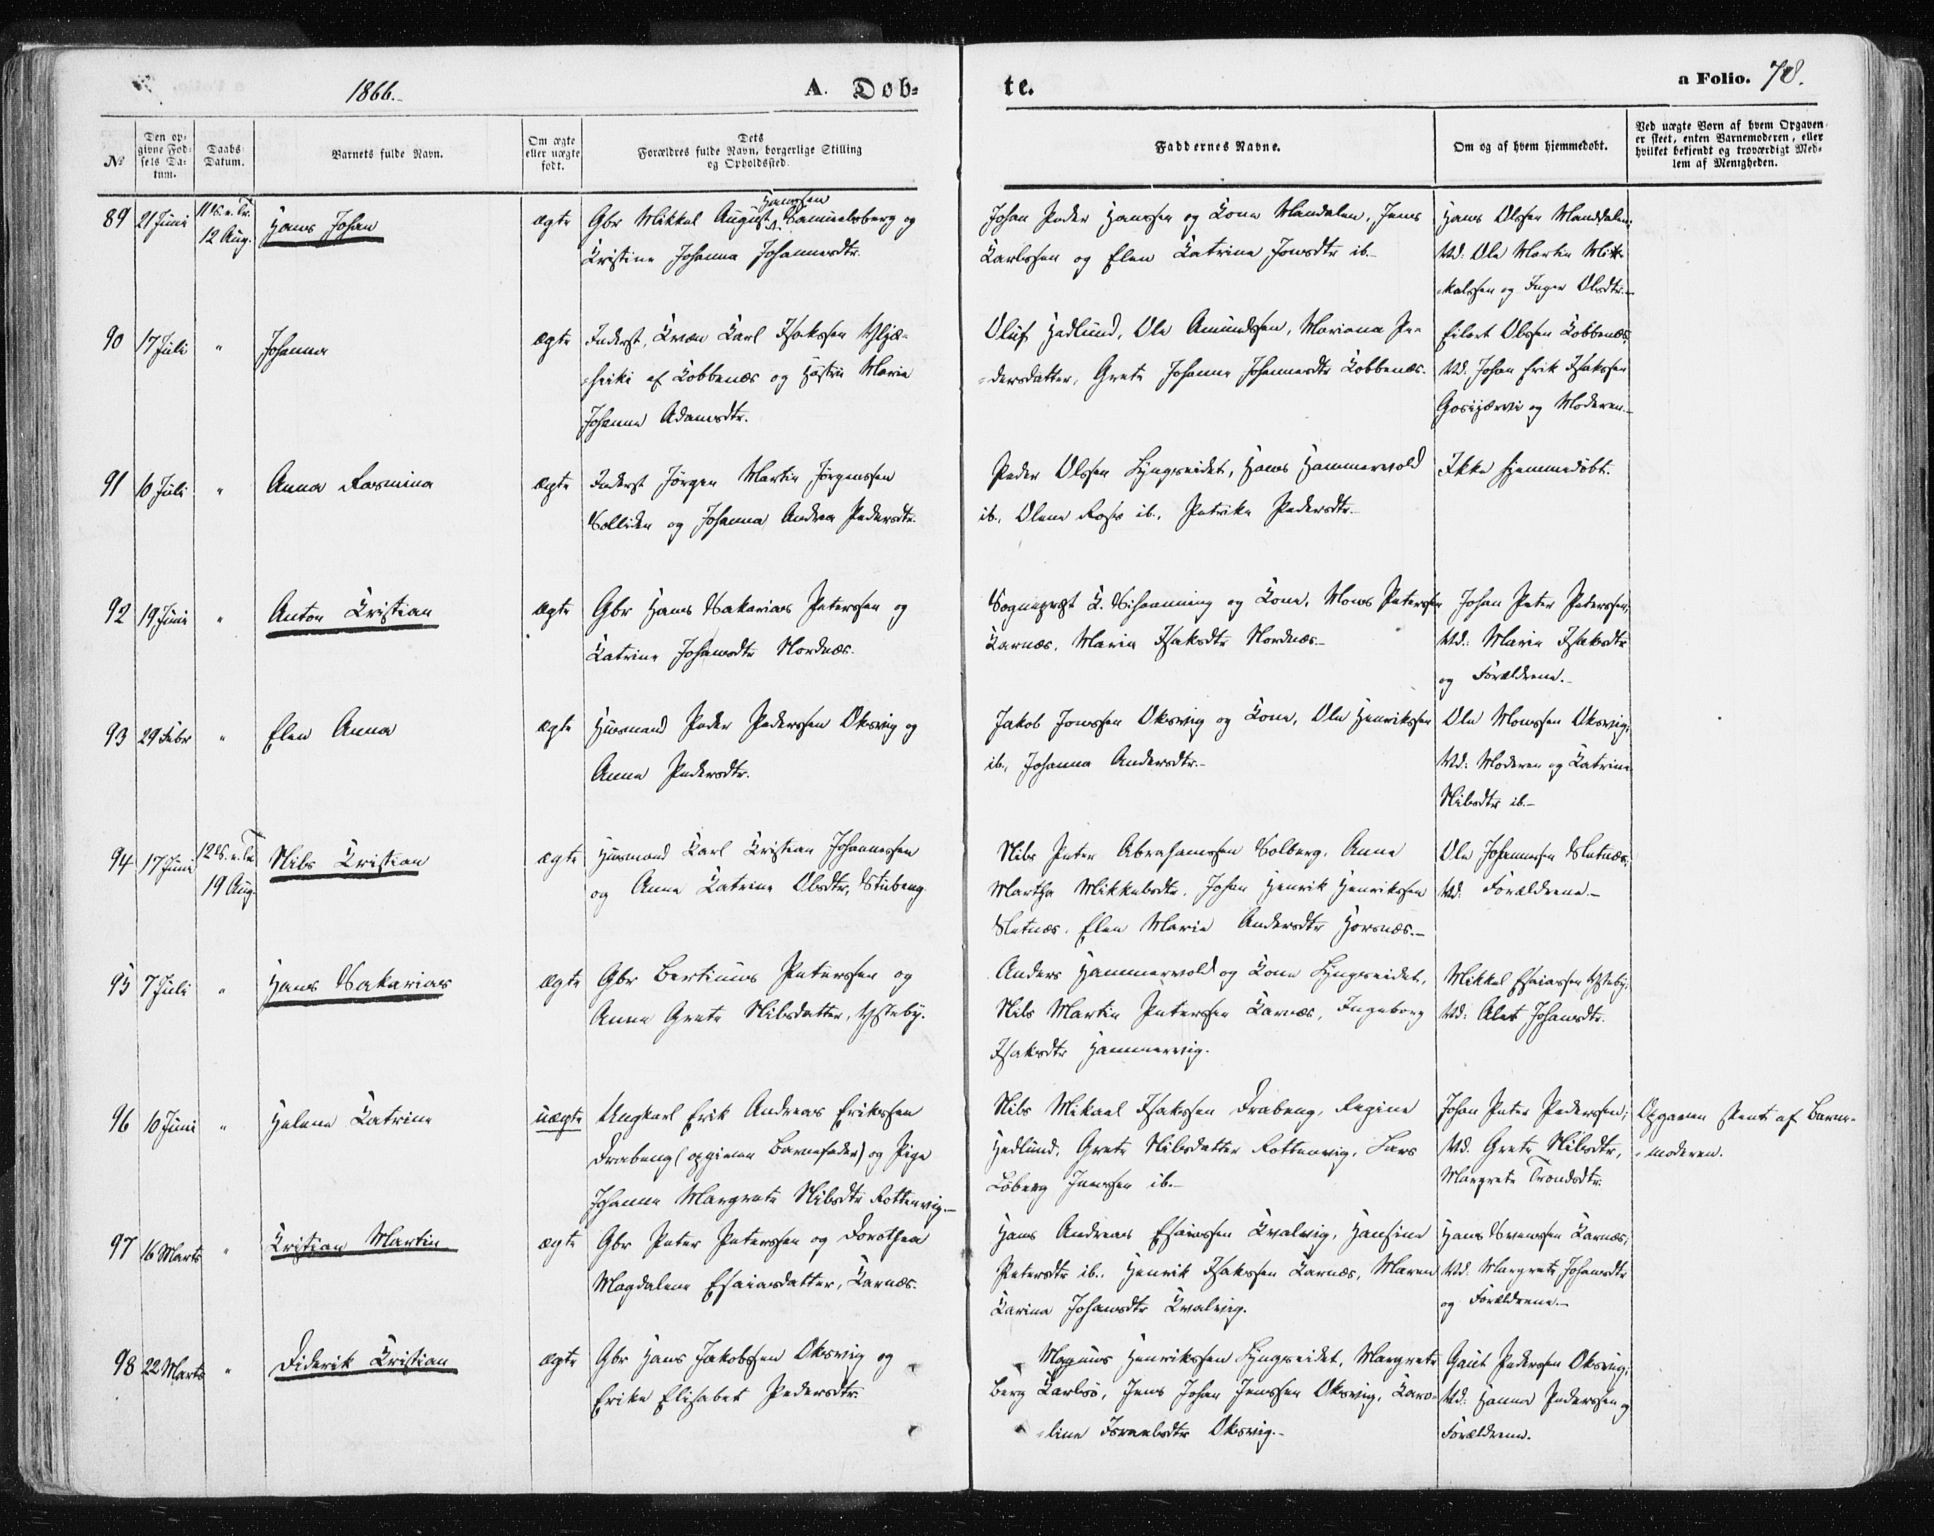 1866.
A. Dob=
te.
a Folio. 78.
No
Den op-
givne Fød-
sels Da-
tum.
Daabs
Datum.
Barnets fulde Navn.
Om ægte
eller uægte
født.
Dets
Forældres fulde Navn, borgerlige Stilling
og Opholdssted.
Faddernes Navne.
Om og af hvem hjemmedøbt.
Ved uægte Børn af hvem Opgaven
er skeet, enten Barnemoderen, eller
hvilket bekjendt og troværdigt Med-
lem af Menigheden.
89 21 Juni 11 S. e. Tr.
12 Aug.
Hans Johan
ægte
Hanssen
Gbr Mikkel August Samuelsberg og
Kristine Johanna Johannesdtr.
Johan Peder Hanssen og Kone Mandalen, Jens
Karlssen og Elen Katrine Jonsdtr ib.-
Hans Olssen Mandalen;
Vd. Ole Martin Mik-
kelssen og Inger Olsdtr.-
90 17 Juli " Johanna
ægte
Inderst, Kvæn Karl Isakssen
af Kobbenæs og Hustru Maria
Johanna Adamsdtr.
Oluf Hedlund, Ole Amundssen, Mariana Pe-
-dersdatter, Grete Johanne Johannesdtr Kobbenæs.
Eilert Olssen Kobbenæs;
Vd. Johan Erik Isakssen
og Moderen.-
91 10 Juli " Anna Rasmina
ægte
Inderst Jørgen Martin Jørgenssen
Solliden og Johanna Andrea Pedersdtr.
Peder Olssen Lyngseidet, Hans Hammervold
ib., Olena Ross ib., Petrike Pedersdtr.-
Ikke hjemmedøbt.
92 19 Juni " Anton Kristian
ægte
Gbr Hans Sakarias Peterssen og
Katrine Johansdtr Nordnæs.
Sognepræst K. og Kone, Mons Peterssen
Karnæs, Maria Isaksdtr Nordnæs.-
Johan Peter Pederssen;
Vd.: Maria Isaksdtr
og Forældrene.-
93 29 Febr " Elen Anna
ægte
Husmand Peder Pederssen Oksvig og
Anna Pedersdtr.
Jakob Jonssen Oksvig og Kone, Ole Henrikssen
ib., Johanna Andersdtr.-
Ole Monssen Oksvig;
Vd: Moderen og Katrine
Nilsdtr ib.-
94 17 Juni 12 S. e. Tr.
19 Aug.
Nils Kristian
ægte
Husmand Karl Kristian Johannessen
og Anna Katrine Olsdtr, Stubeng
Nils Peter Abrahamssen Solberg, Anne
Martha Mikkelsdtr, Johan Henrik Henrikssen
Sletnæs, Elen Marie Andersdtr Horsnæs.-
Ole Johannessen Sletnæs;
Vd. Forældrene.-
95 7 Juli " Hans Sakarias
ægte
Gbr Bertinus Peterssen og
Anne Grete Nilsdatter, Ysteby.
Anders Hammervold og Kone Lyngseidet,
Nils Martin Peterssen Karnæs, Ingeborg
Isaksdtr Hammervig.
Mikkel Esaiassen Ysteby;
Vd: Alet Johansdtr.
96 10 Juni " Helene Katrine
uægte
Ungkarl Erik Andreas Erikssen
Drabeng (opgiven Barnefader) og Pige
Johanna Margrete Nilsdtr Rottenvig.-
Nils Mikael Isakssen Drabeng, Regine
Hedlund, Grete Nilsdatter Rottenvig, Lars
Løberg Jenssen ib.-
Johan Peter Pederssen;
Vd. Grete Nilsdtr,
Margrete Trondsdtr.
Opgaven skeet af Barne-
-moderen.
97 16 Marts " Kristian Martin
ægte
Gbr Peter Peterssen og Dorothea
Magdalene Esaiasdatter, Karnæs.
Hans Andreas Esaiassen Kvalvig, Hansine
Petersdtr ib., Henrik Isakssen Karnæs, Maren
Karina Johansdtr Kvalvig.
Hans Svenssen Karnæs;
Vd. Margrete Johansdtr
og Forældrene.-
98 22 Marts " Diderik Kristian
ægte
Gbr Hans Jakobssen Oksvig og
Erika Elisabet Pedersdtr.
Magnus Henrikssen Lyngseidet, Margrete
Berg Karlsø, Jens Johan Jenssen Oksvig, Karo-
-line Israelsdtr Oksvig.-
Gaut Pederssen Oksvig;
Vd. Hanna Pederssen og
Forældrene.